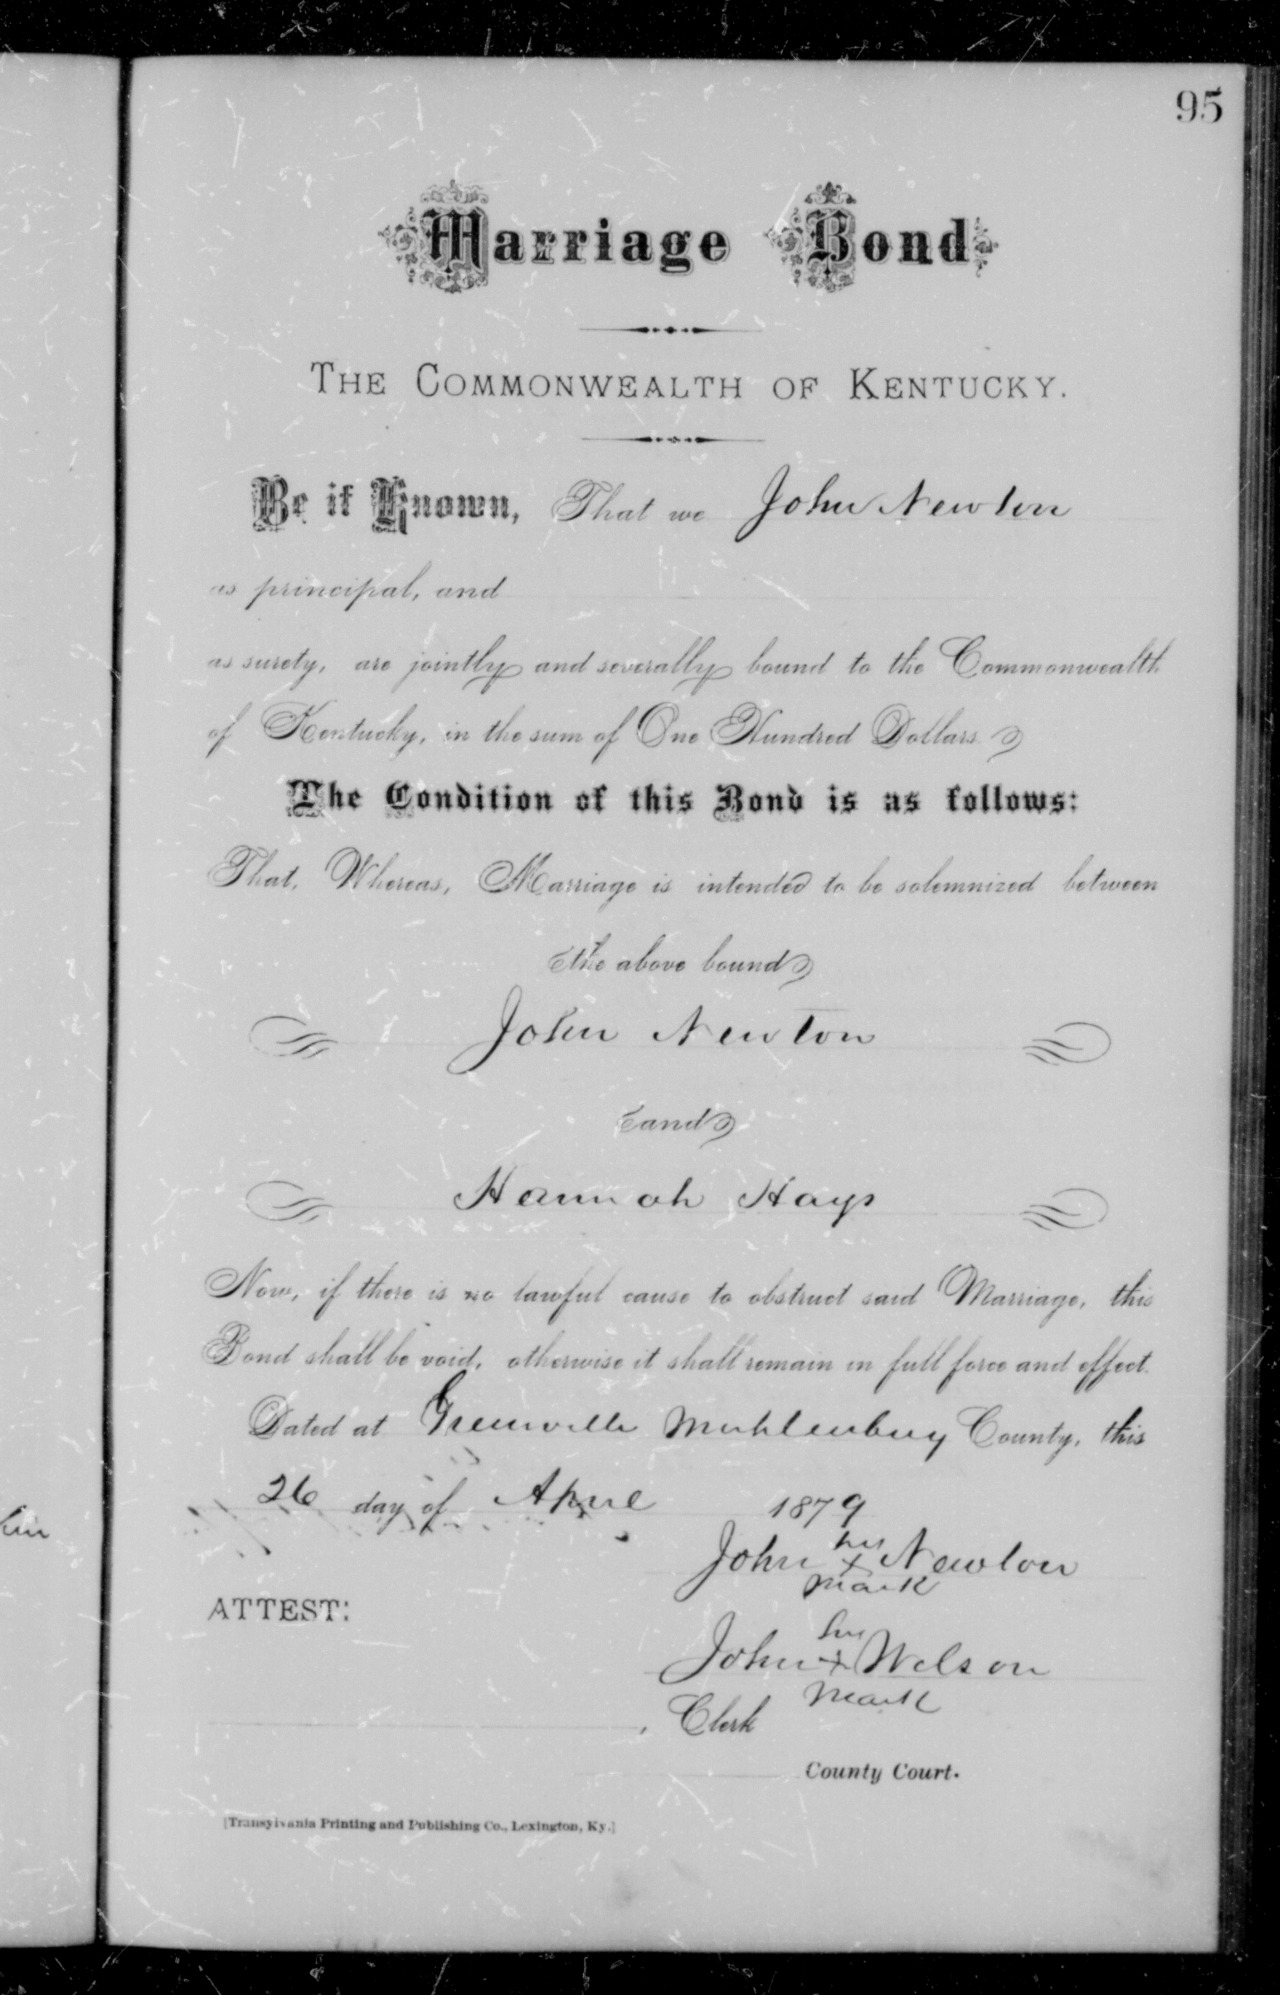 95
Marriage Bond
THE COMMONWEALTH OF KENTUCKY.
Be it Known, That we John Newton
as principal, and
as surety, are jointly and severally bound to the Commonwealth
of Kentucky, in the sum of One Hundred Dollars.
The Condition of this Bond is as follows:
That, Whereas, Marriage is intended to be solemnized between
the above bound
John Newton
and
Hannah Hays
Now, if there is no lawful cause to obstruct said Marriage, this
Bond shall be void, otherwise it shall remain in full force and effect.
Dated at Greenville Muhlenburg County, this
26 day of April 1879
his
John + Newton
mark
ATTEST:
his
John + Wilson
mark
, Clerk
County Court.
[Transylvania Printing and Publishing Co., Lexington, Ky.]